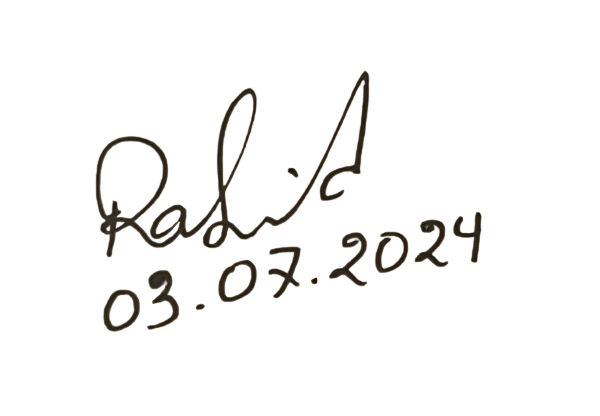 Rahid
03.07.2024